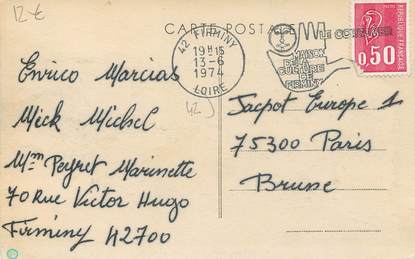 12 €
CARTE POSTALE
42 FIRMINY
19H15
13-6
1974
LOIRE
LE CORBUSIER
MAISON
DE LA
CULTURE
DE
FIRMINY
REPUBLIQUE FRANÇAISE
0,50
42 J
Enrico Marcias
Mick Michel
Mm Peyret Marinette
70 Rue Victor Hugo
Firminy 42700
Jacpot Europe 1
75300 Paris
Brune